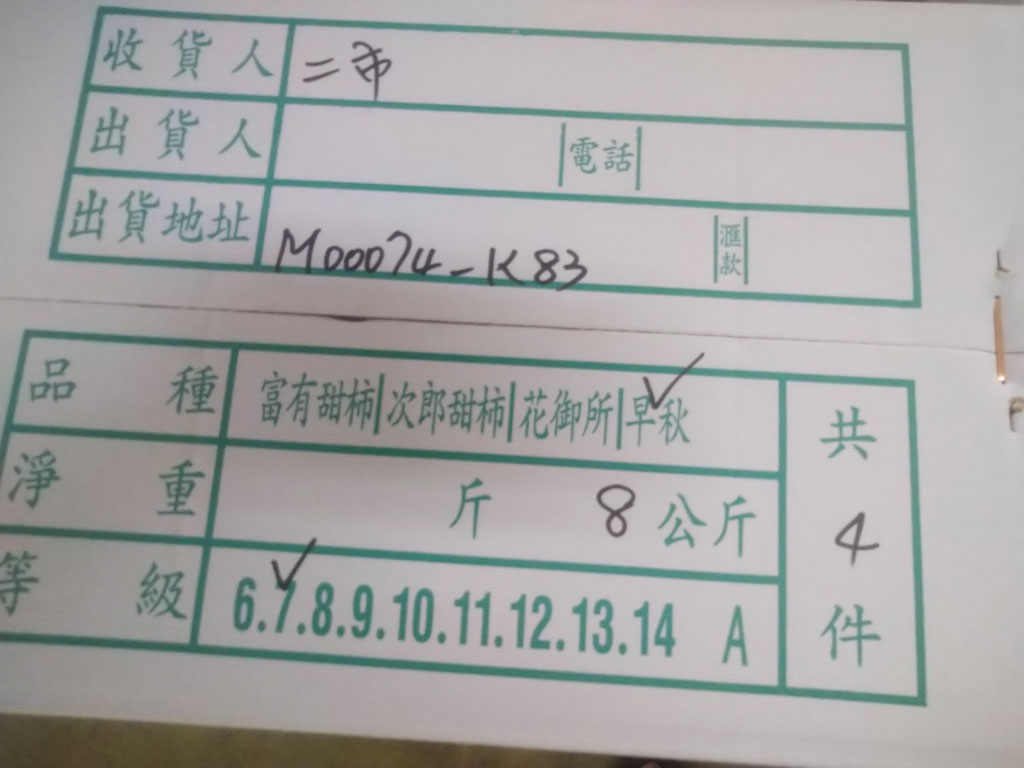 收貨人 二市
出貨人 電話
出貨地址 M00074-K83 滙款
品種 富有甜柿 次郎甜柿 花御所 早秋
淨重 斤 8 公斤
等級 6.7.8.9.10.11.12.13.14 A
共 4 件